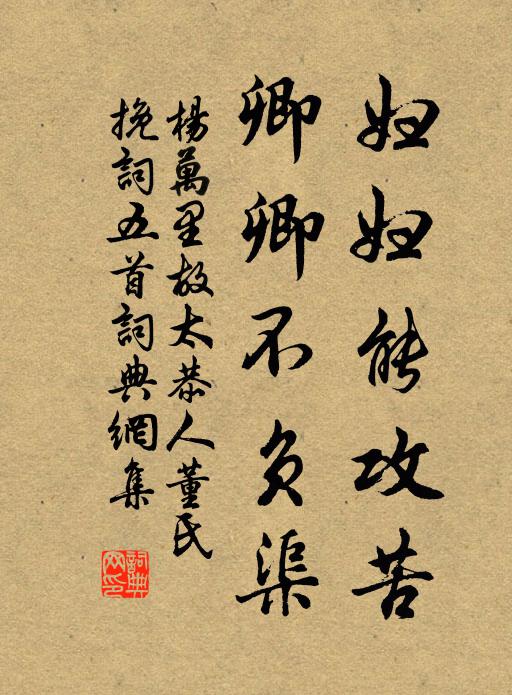 妇妇能攻苦
卿卿不负渠
楊萬里故太恭人董氏
挽詞五首詞典網集
詞典网印